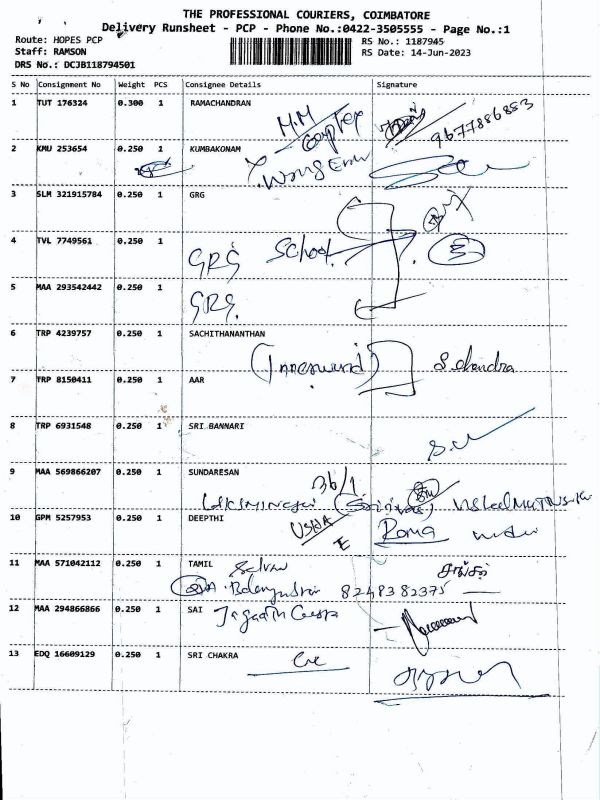 THE PROFESSIONAL COURIERS, COIMBATORE
Delivery Runsheet - PCP - Phone No.:0422-3505555 - Page No.:1
Route: HOPES PCP
RS No.: 1187945
Staff: RAMSON
RS Date: 14-Jun-2023
DRS No.: DCJB118794501
S No Consignment No Weight PCS Consignee Details Signature
1 TUT 176324 0.300 1 RAMACHANDRAN
M.M
9677886883
2 KMU 253654 0.250 1 KUMBAKONAM
3 SLM 321915784 0.250 1 GRG
4 TVL 7749561 0.250 1
GRG School
5 MAA 293542442 0.250 1
GRG
6 TRP 4239757 0.250 1 SACHITHANANTHAN
S. Chandra
7 TRP 8150411 0.250 1 AAR
8 TRP 6931548 0.250 1 SRI BANNARI
9 MAA 569866207 0.250 1 SUNDARESAN
36/1
10 GPM 5257953 0.250 1 DEEPTHI
USHA
E
Roma
11 MAA 571042112 0.250 1 TAMIL
Selvan
8248382375
12 MAA 294866866 0.250 1 SAI
13 EDQ 16609129 0.250 1 SRI CHAKRA